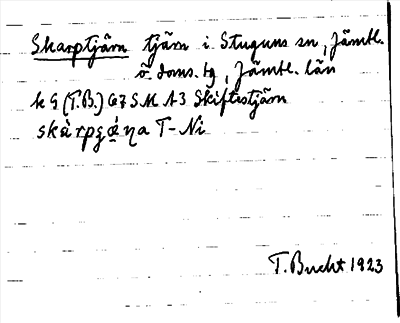 Skarptjärn tjärn i Stuguns sn, Jämtl.
ö. doms. tg, Jämtl. län
k G (T.B.) G7 S M 13 Skiftestjärn
T-Ni
T. Bucht 1923